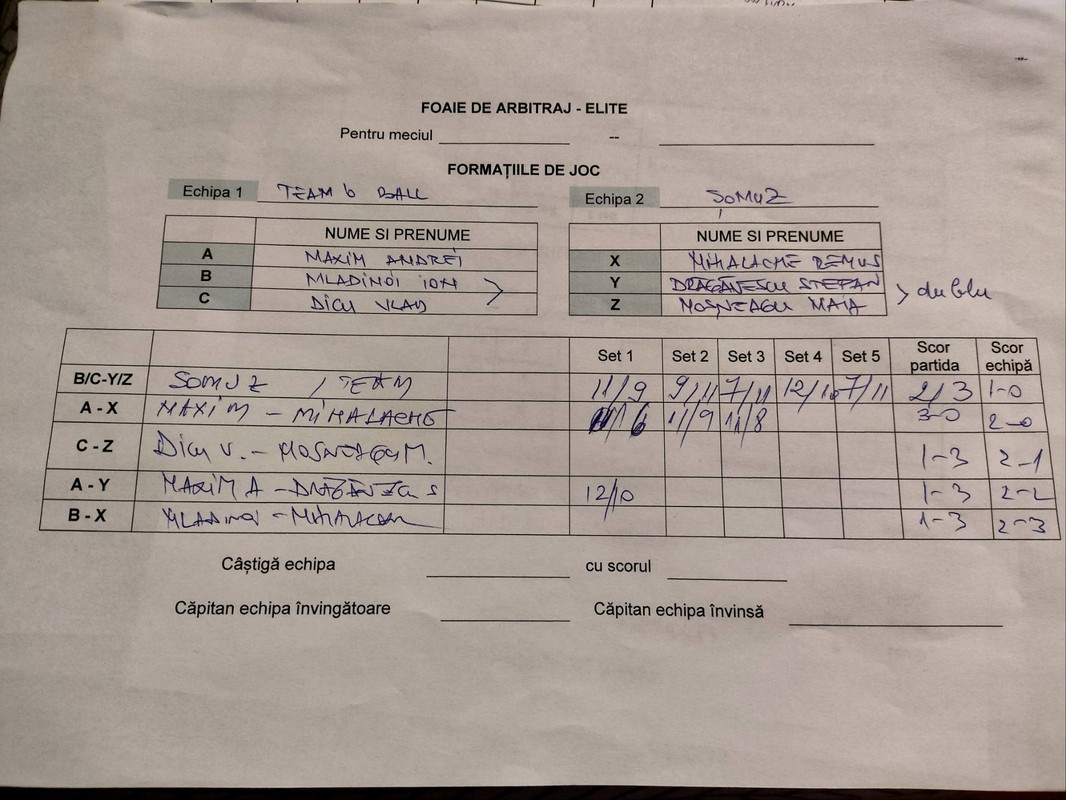 FOAIE DE ARBITRAJ - ELITE
Pentru meciul --
FORMAȚIILE DE JOC
Echipa 1 TEAM 6 BALL Echipa 2 ȘOMUZ
NUME SI PRENUME NUME SI PRENUME
A MAXIM ANDREI X MIHALACHE REMUS
B MLADINOI ION Y DRAGĂNESCU STEFAN
C DICU VLAD Z MOȘNEAGU MAIA
dublu
Set 1 Set 2 Set 3 Set 4 Set 5 Scor partida Scor echipă
B/C-Y/Z SOMUZ / TEAM 11/9 9/11 7/11 12/10 7/11 2/3 1-0
A - X MAXIM - MIHALACHE 11/9 11/8 3-0 2-0
C - Z DICU V. - MOSNEAGU M. 1-3 2-1
A - Y MAXIM A - 12/10 1-3 2-2
B - X MLADINOI - 1-3 2-3
Câștigă echipa cu scorul
Căpitan echipa învingătoare Căpitan echipa învinsă